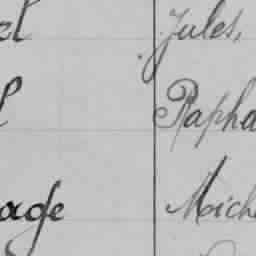 el Jules,
l Rapha
age Miche